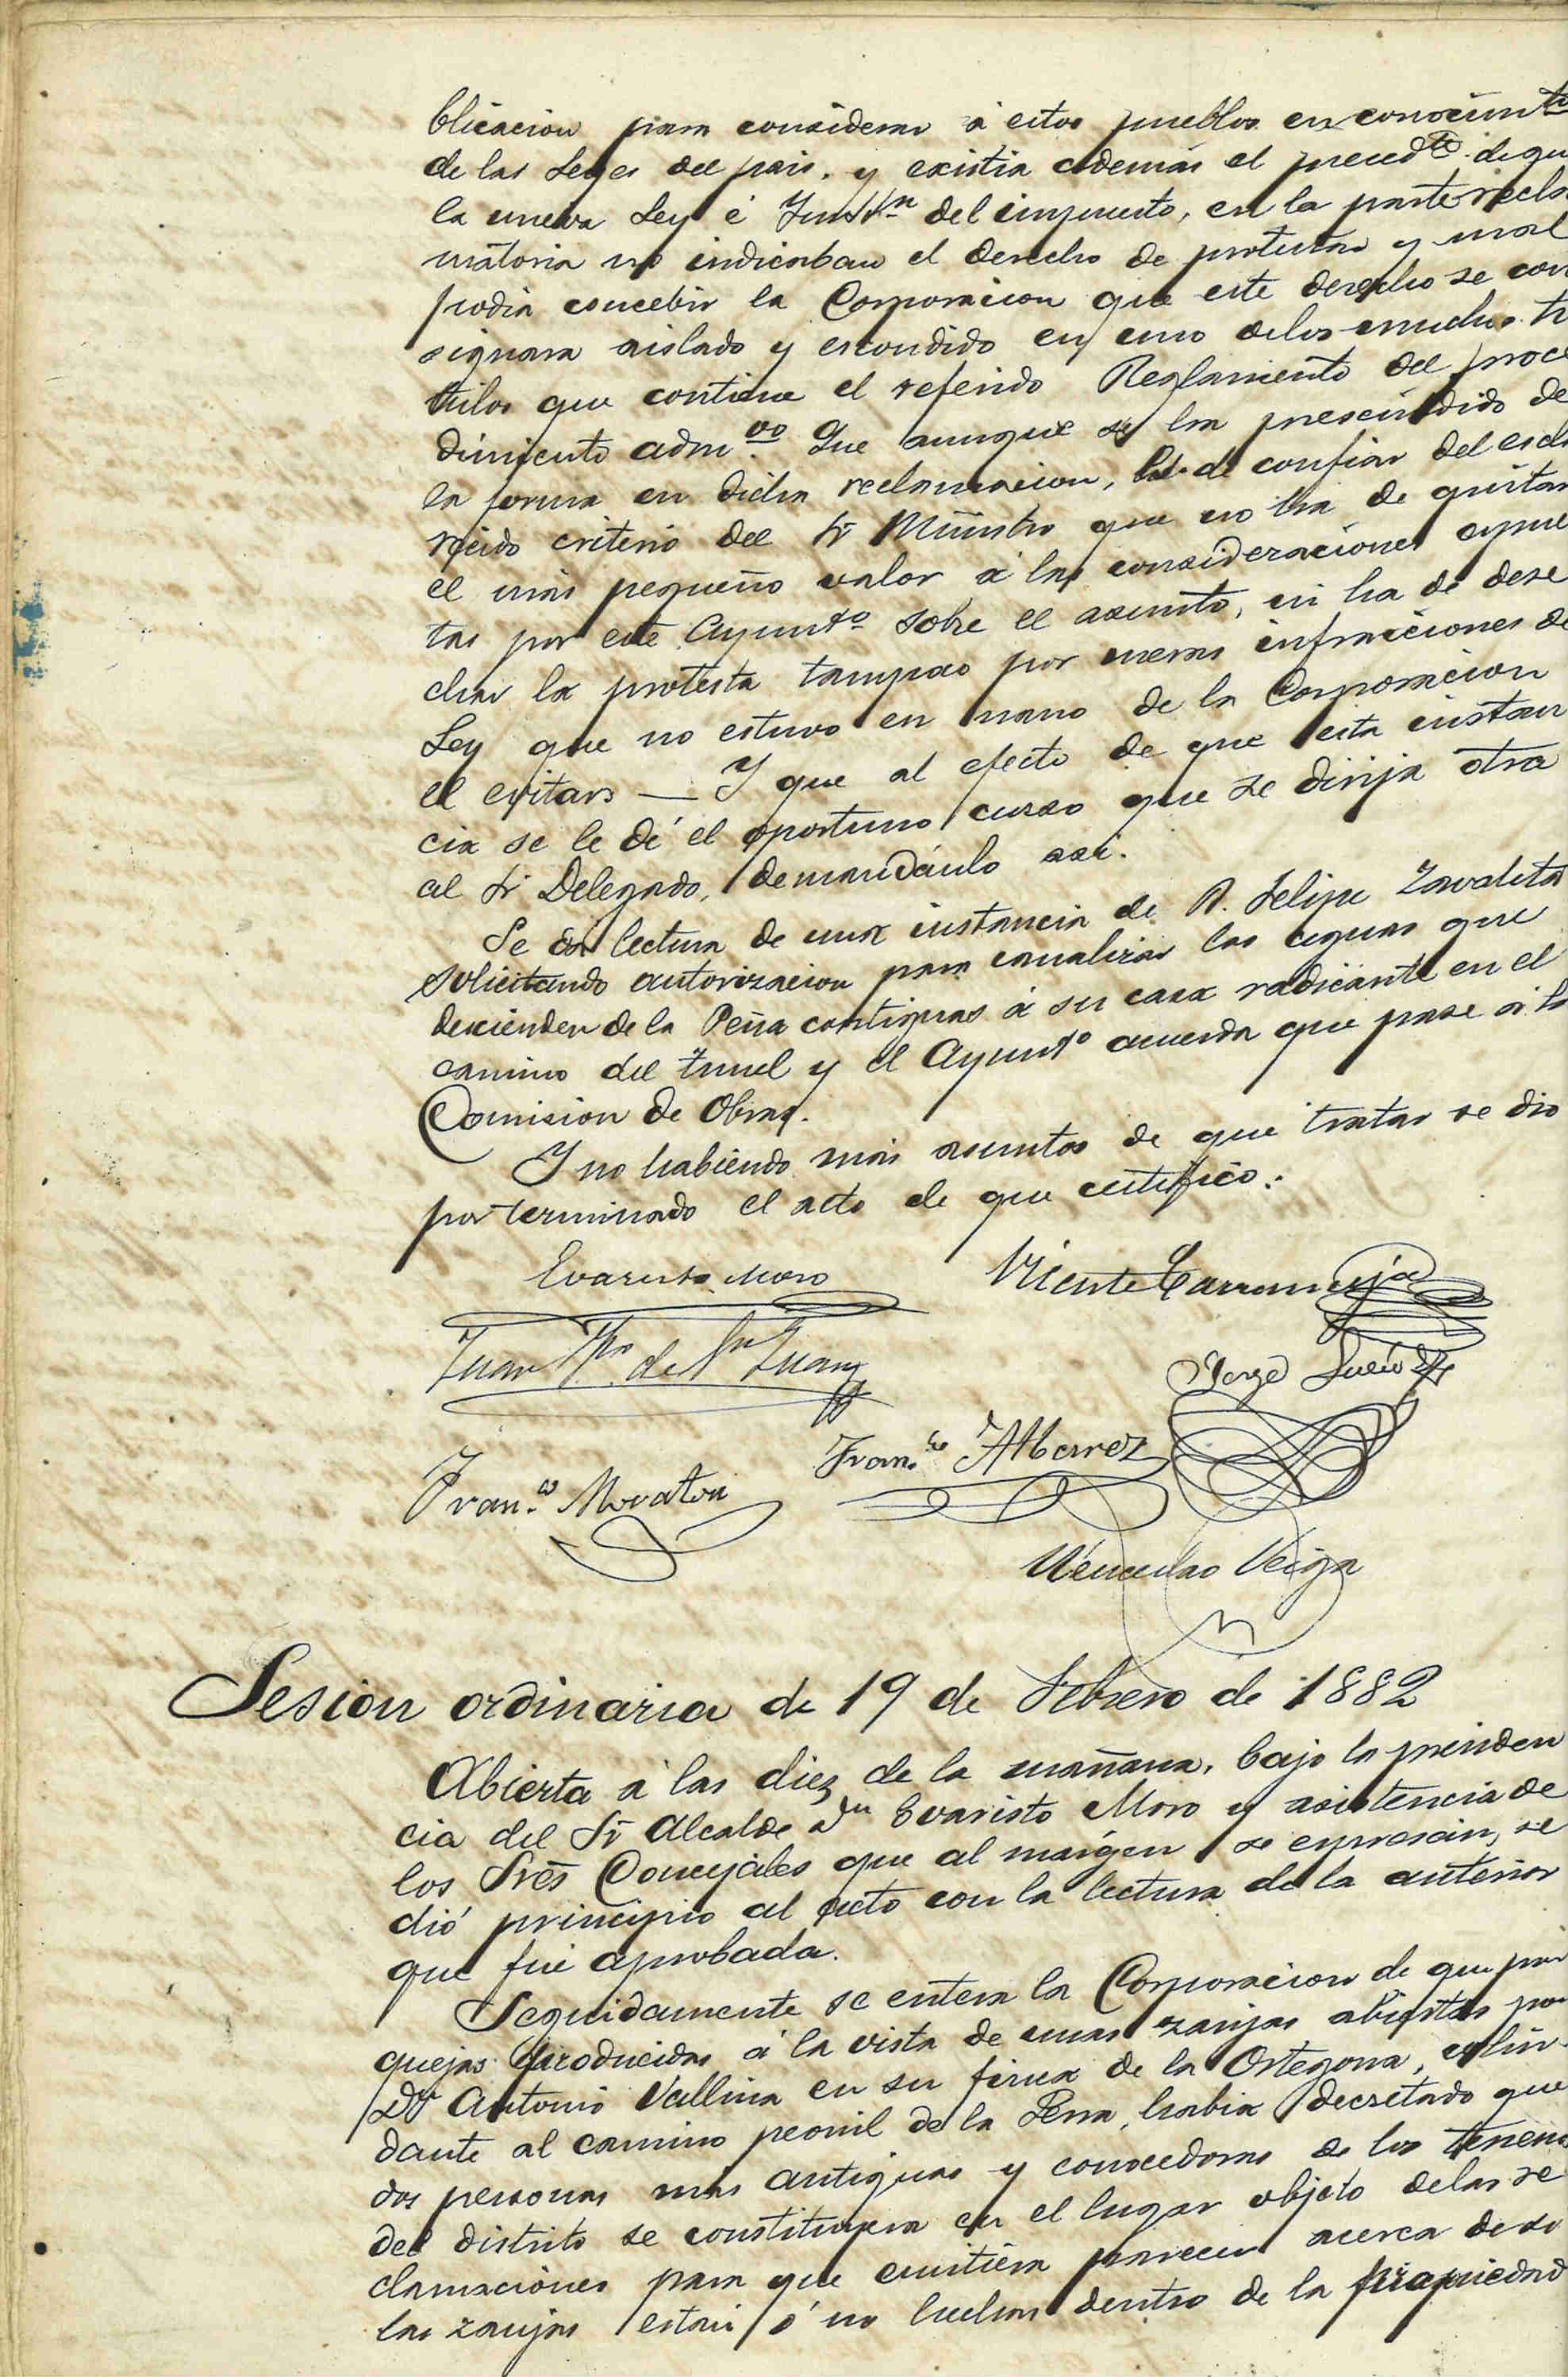 blicacion para considerar á estos pueblos en conocimto
de las Leyes del pais. y existia además el precedte de que
la nueva Ley é Instrn del impuesto, en la parte recla
matoria no indicaban el derecho de protestar y mal
podia concebir la Corporacion que este derecho se con
signara aislado y escondido en uno delos muchos ti
tulos que contiene el referido Reglamento del proce
dimiento admvo Que aunque se ha prescindido de
la forma en dicha reclamacion, há de confiar del escla
recido criterio del Sr Ministro que no ha de quitar
el más pequeño valor á las consideraciones expues
tas por este Ayunto sobre el asunto, ni ha de dese
char la protesta tampoco por meras infracciones de
Ley que no estuvo en mano de la Corporacion
el evitars — Y que al efecto de que esta instan
cia se le dé el oportuno curso que se dirija otra
al Sr Delegado, demandándolo asi.
Se da lectura de una instancia de D. Felipe Zavaleta
solicitando autorizacion para canalizar las aguas que
descienden de la Peña contiguas á su casa radicante en el
camino del tunel y el Ayunto acuerda que pase á la
Comision de Obras.
Y no habiendo más asuntos de que tratar se dio
por terminado el acto de que certifico.
Evaristo Moro
Vicente Carramesja
Juan Fro de Sn Juan
Jorge Lucio
Franco Albarez
Franco Moraton
Wenceslao Veiga
Sesion ordinaria de 19 de Febrero de 1882
Abierta á las diez de la mañana, bajo la presiden
cia del Sr Alcalde Dn Evaristo Moro y asistencia de
los Sres Concejales que al márgen se expresan, se
dió principio al acto con la lectura de la anterior
que fué aprobada.
Seguidamente se entera la Corporacion de que por
quejas producidas á la vista de unas zanjas abiertas por
Dn Antonio Vallina en su finca de la Ortegona, colin
dante al camino peonil de la Peña, habia decretado que
dos personas más antiguas y conocedoras de los terrenos
del distrito se constituyera en el lugar objeto delas re
clamaciones para que emitiera parecer acerca de si
las zanjas están ó no hechas dentro de la propiedad